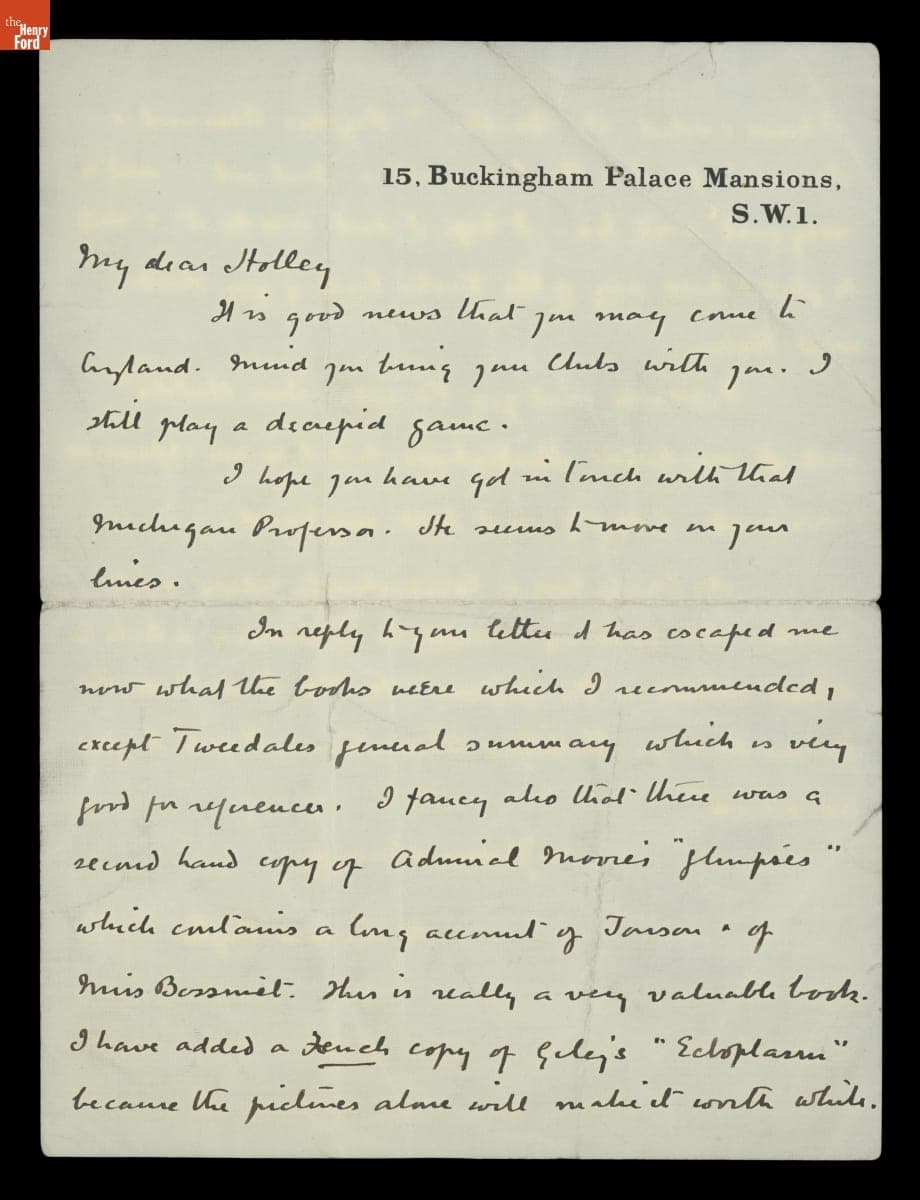 the
Henry
Ford
15, Buckingham Palace Mansions,
S.W.1.
My dear Holley
It is good news that you may come to
England. Mind you bring your Clubs with you. I
still play a decrepid game.
I hope you have got in touch with that
Michigan Professor. He seems to move on your
lines.
In reply to your letter it has escaped me
now what the books were which I recommended,
except Tweedales general summary which is very
good for references. I fancy also that there was a
second hand copy of Admiral Moore's "Glimpses"
which contains a long account of Jonson & of
Miss Bessinet. This is really a very valuable book.
I have added a French copy of Geley's "Ectoplasm"
because the pictures alone will make it worth while.